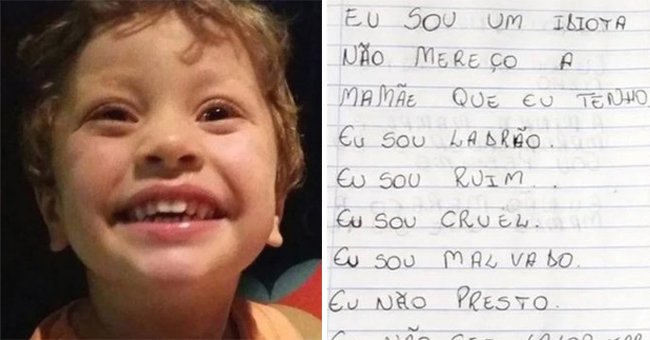 EU SOU UM IDIOTA
NÃO MEREÇO A
MAMÃE QUE EU TENHO
EU SOU LADRÃO.
EU SOU RUIM..
EU SOU CRUEL.
EU SOU MALVADO.
EU NÃO PRESTO.